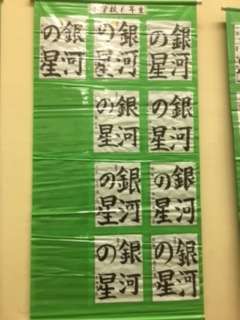 小学校六年生
銀河
の星
銀河
の星
銀河
の星
銀河
の星
銀河
の星
銀河
の星
銀河
の星
銀河
の星
銀河
の星